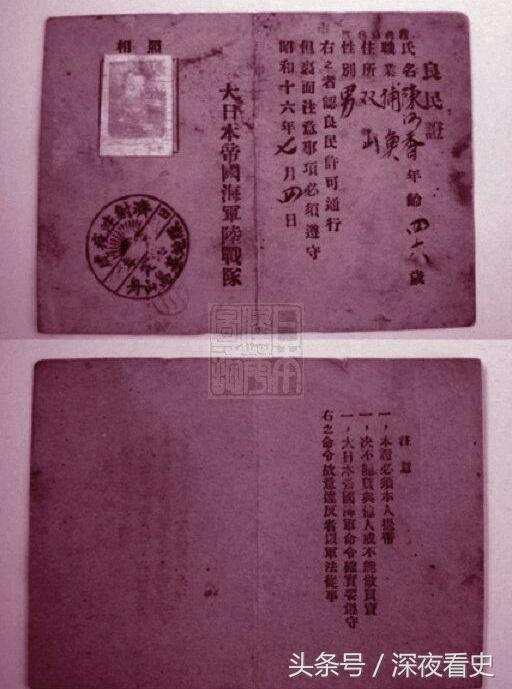 良民證
氏名 陳 香 年齡 四六 歲
職業 捕魚
住所 双山
性別 男
右之者認良民許可通行
但裏面注意事項必須遵守
昭和十六年七月四日
大日本帝國海軍陸戰隊
相 照
注意
一，本證必須本人携帶
一，決不能貸與他人或不能做買賣
一，大日本帝國海軍命令確實要遵守
右之命令故意違反者以軍法從事
头条号 / 深夜看史